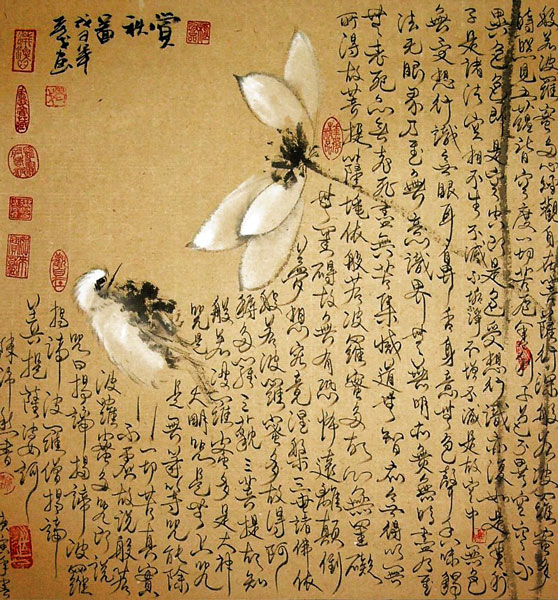 般若波羅蜜多心經觀自在菩薩行深般若波羅蜜多
時照見五蘊皆空度一切苦厄舍利子色不異空空不
異色色即是空空即是色受想行識亦復如是舍利
子是諸法空相不生不滅不垢不淨不增不減是故空中無色
無受想行識無眼耳鼻舌身意無色聲香味觸
法无眼界乃至無意識界無無明亦無無明盡乃至
無老死亦無老死盡無苦集滅道無智亦無得以無
所得故菩提薩埵依般若波羅蜜多故心無罣礙
無罣礙故無有恐怖遠離顛倒
夢想究竟涅槃三世諸佛依
般若波羅蜜多故得阿
耨多羅三藐三菩提故知
般若波羅蜜多是大神
咒是大明咒是無上咒
是無等等咒能除
一切苦真實
不虛故說般若
波羅蜜多咒即說
咒曰揭諦揭諦波羅
揭諦波羅僧揭諦
菩提薩婆訶
賞秋圖